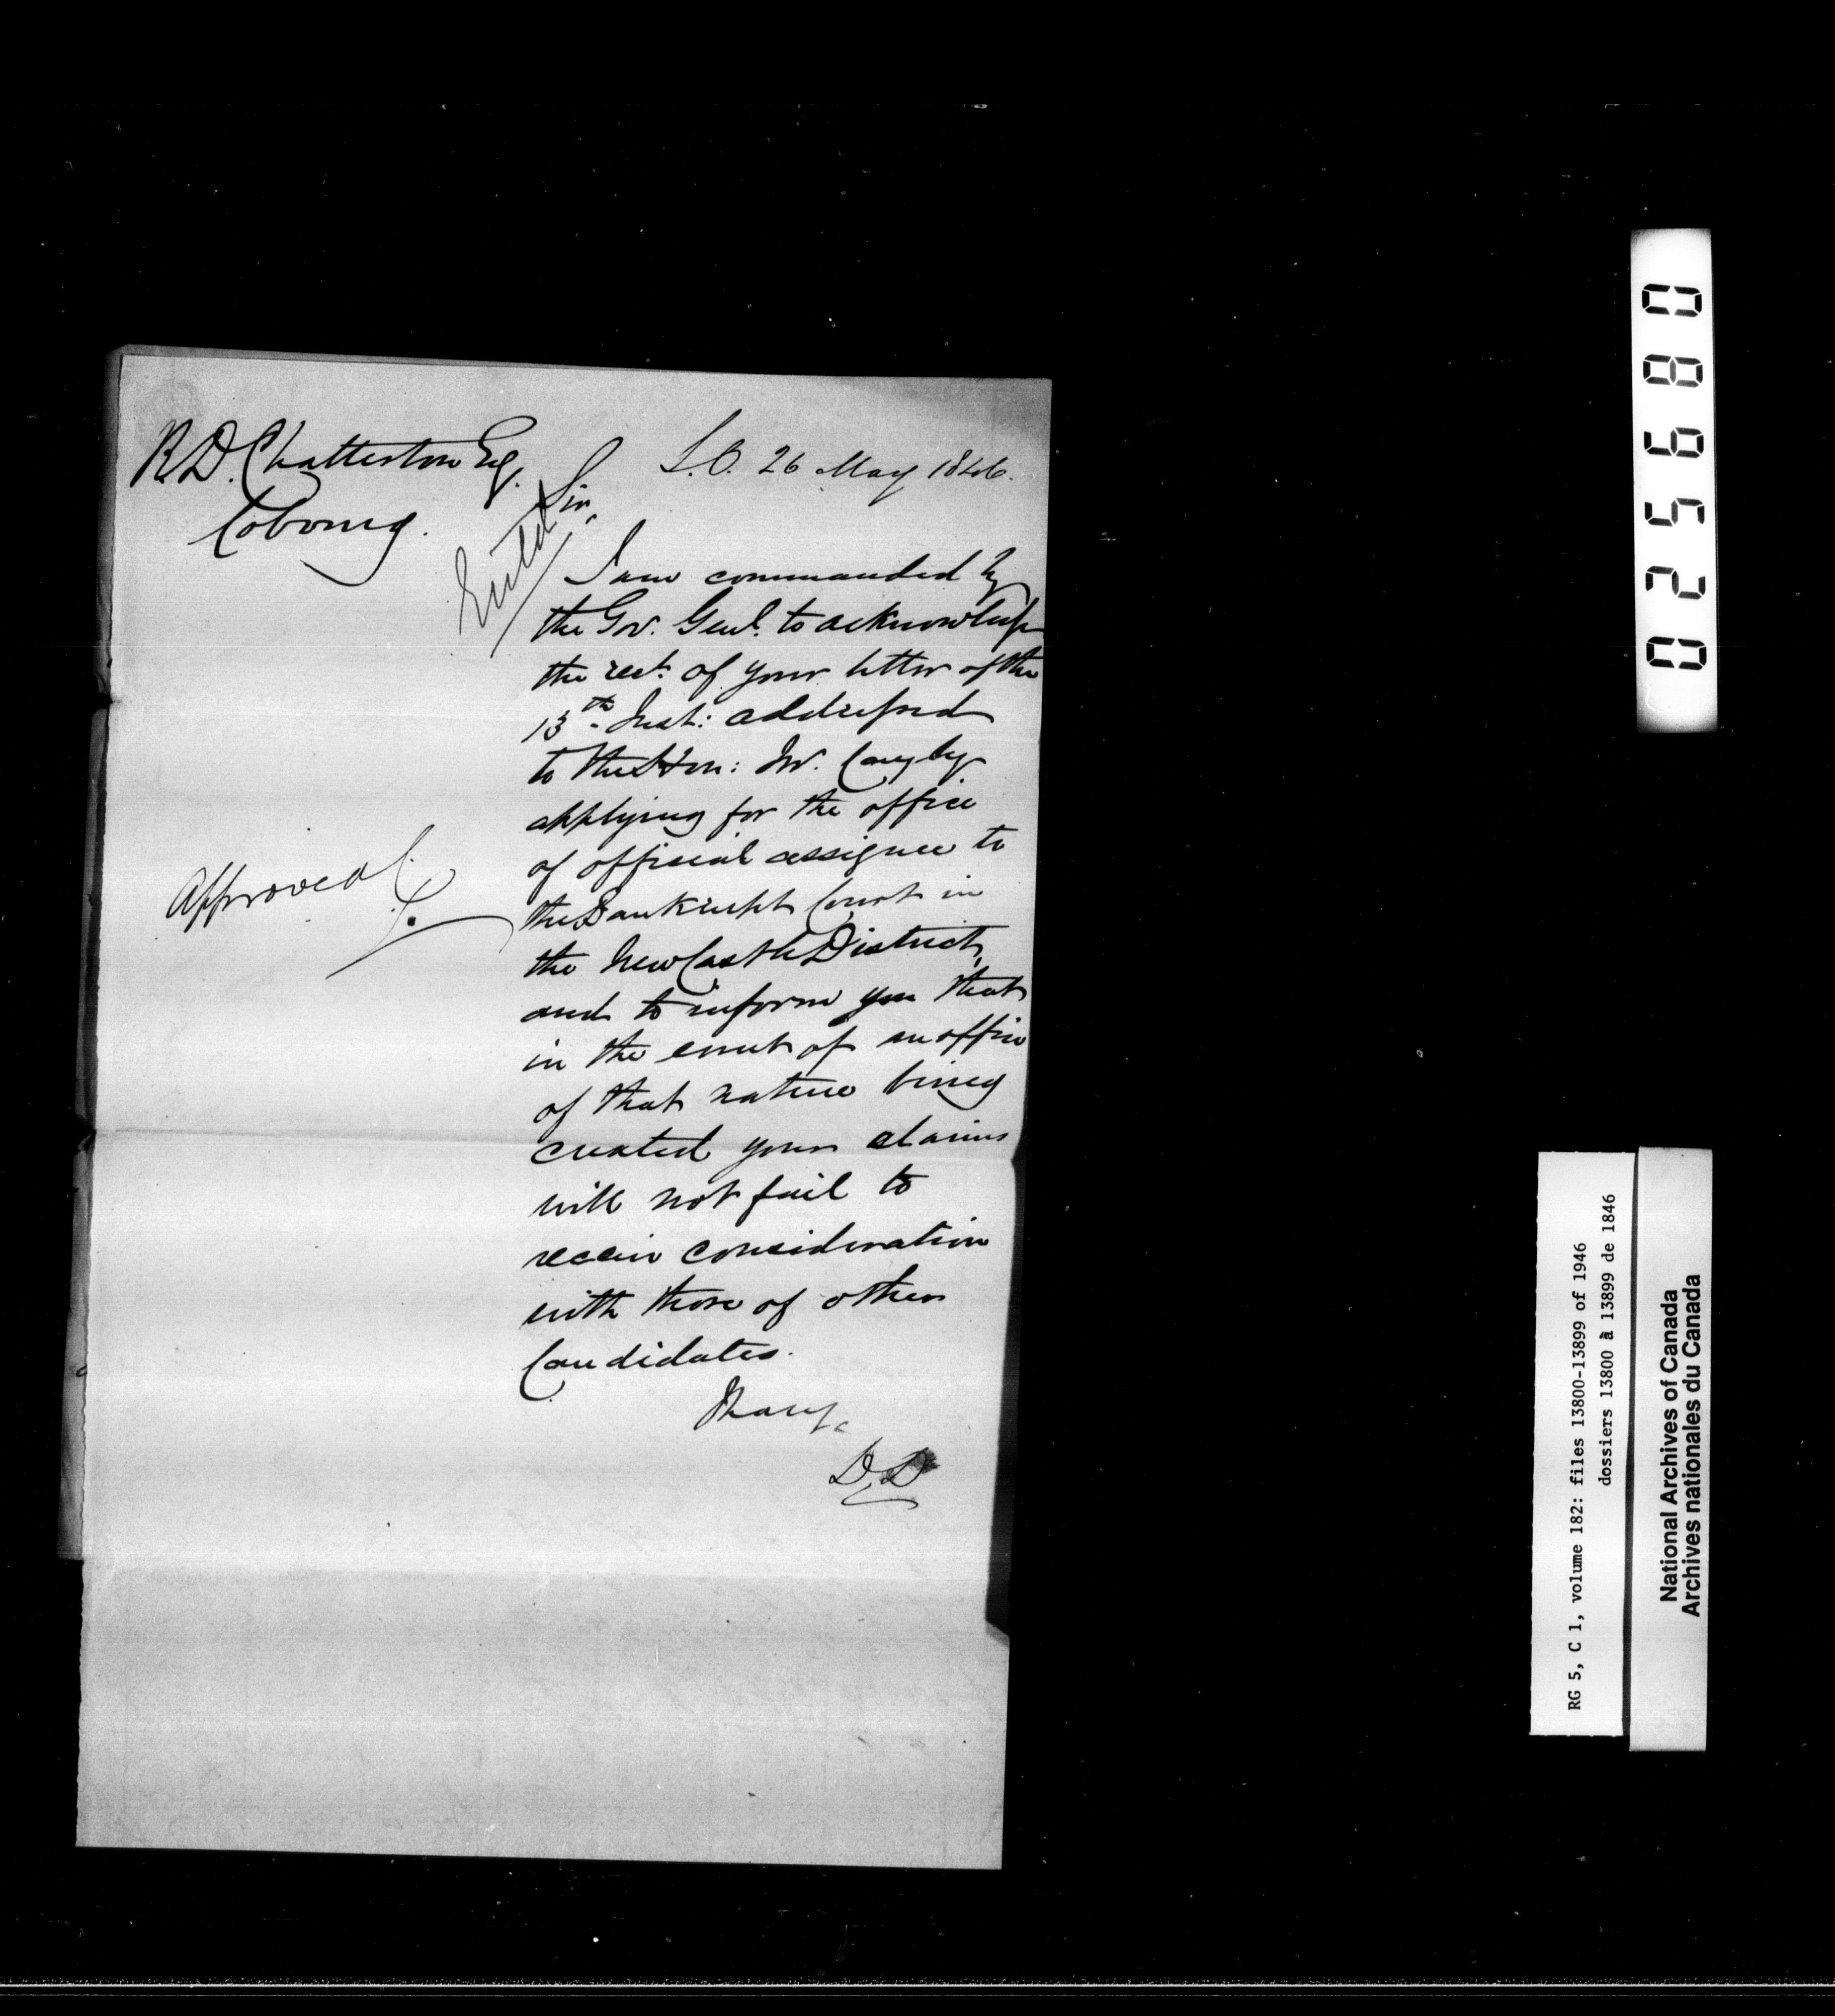 R.D. Chatterton Esq.
Cobourg.
S.O. 26 May 1846.
Sir,
Entd
I am commanded by
the Gov. Genl. to acknowledge
the rect. of your letter of the
13th Inst: addressed
to the Hon: Mr. Cayley
applying for the office
of official assignee to
the Bankrupt Court in
the NewCastle District,
and to inform you that
in the event of an office
of that nature being
created your claims
will not fail to
receive consideration
with those of other
Candidates.
Approved
DD
025680
RG 5, C 1, volume 182: files 13800-13899 of 1946
dossiers 13800 à 13899 de 1846
National Archives of Canada
Archives nationales du Canada